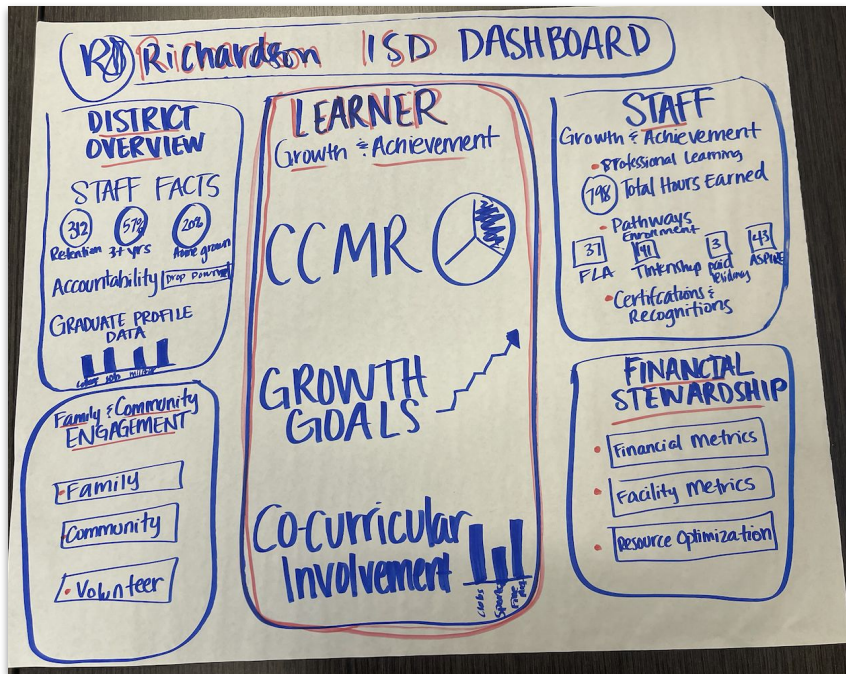 Richardson ISD DASHBOARD
DISTRICT
OVERVIEW
STAFF FACTS
57% 20%
Retention 3+ yrs Home grown
Accountability Drop Down
GRADUATE PROFILE
DATA
Family & Community
ENGAGEMENT
Family
Community
Volunteer
LEARNER
Growth & Achievement
CCMR
GROWTH
GOALS
Co-curricular
Involvement
Clubs
Sports
Fine Arts
STAFF
Growth & Achievement
Professional Learning
798 Total Hours Earned
Pathways
Enrollment
37 191 3 43
FLA Tinternship paid ASPIRE
Certifcations &
Recognitions
FINANCIAL
STEWARDSHIP
Financial Metrics
Facility Metrics
Resource Optimization